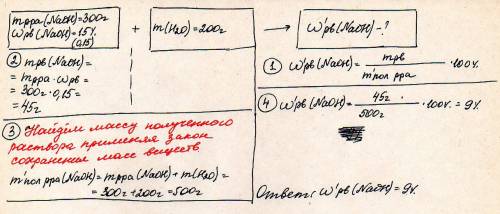 mр-ра(NaOH)=300г
ωр.в(NaOH)=15%
(0,15)
+
m(H₂O)=200г
→
ω'р.в(NaOH)-?
② mр.в(NaOH)=
= mр-ра · ωр.в=
= 300г · 0,15=
= 45г
① ω'р.в(NaOH)= mр.в / m'пол р-ра · 100%
③ Найдём массу полученного
раствора применяя закон
сохранения масс веществ
m'пол р-ра(NaOH)=mр-ра(NaOH)+m(H₂O)=
= 300г+200г=500г
④ ω'р.в(NaOH)= 45г / 500г · 100%= 9%
Ответ: ω'р.в(NaOH)=9%